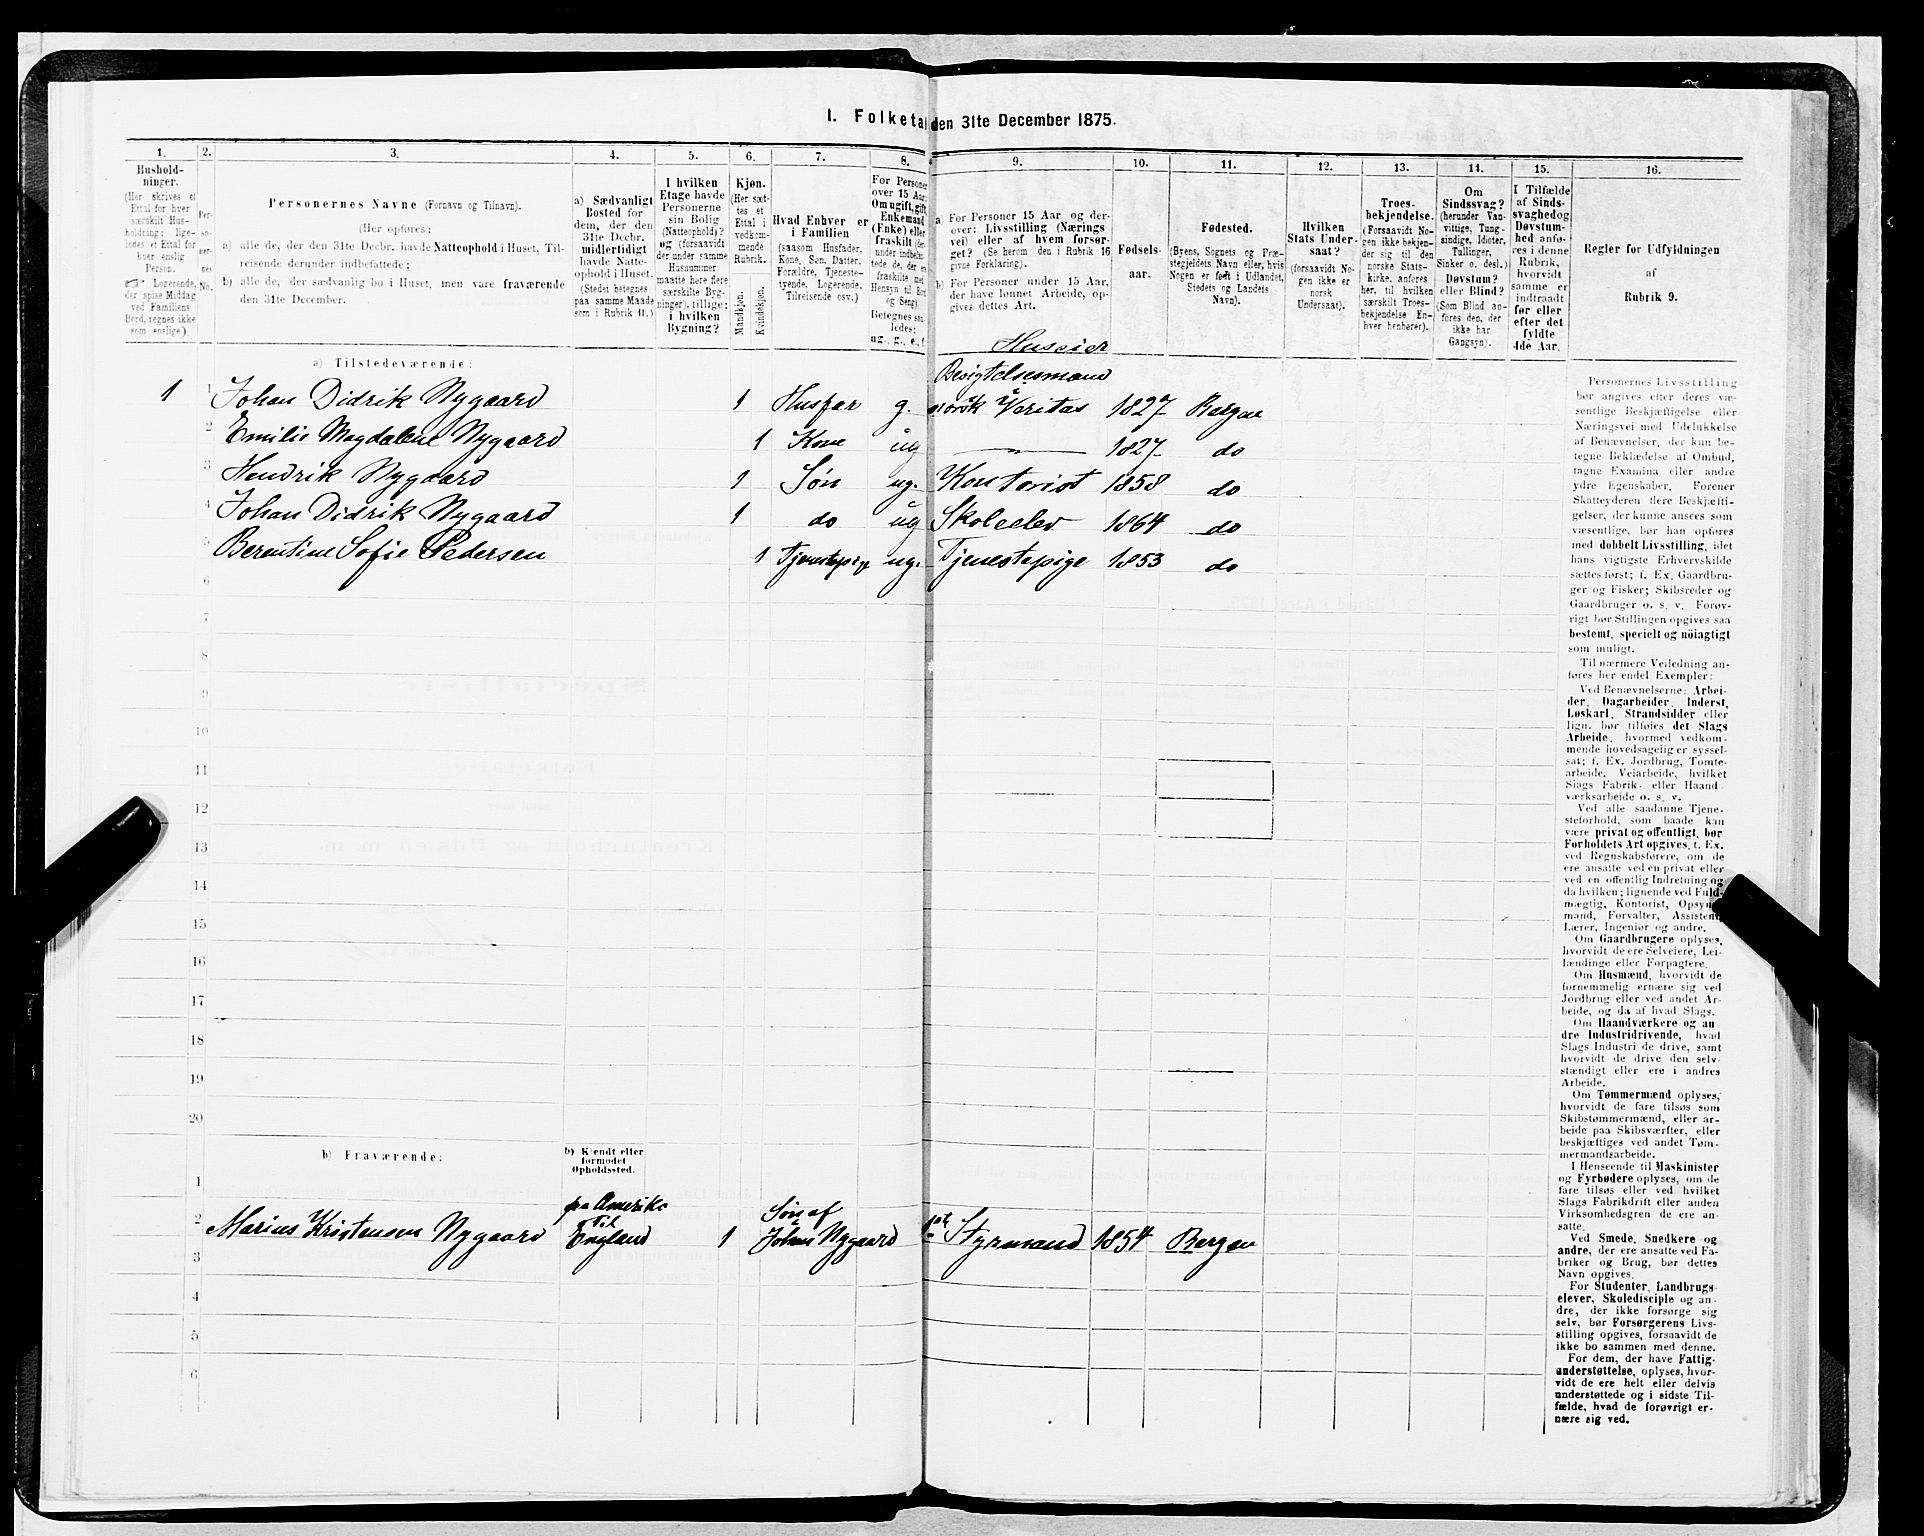 I. Folketal den 31te December 1875.
1. 2. 3. 4. 5. 6. 7. 8. 9. 10. 11. 12. 13. 14. 15. 16.
Hushold-
ninger.
(Her skrives et
Ettal for hver
særskilt Hus-
holdning; lige-
ledes et Ettal for
hver enslig
Person.
☞ Logerende,
der spise Middag
ved Familiens
Bord, regnes ikke
som enslige).
Per-
so-
ner-
nes
No.
Personernes Navne (Fornavn og Tilnavn).
(Her opføres:
a) alle de, der den 31te Decbr. havde Natteophold i Huset, Til-
reisende derunder indbefattede;
b) alle de, der sædvanlig bo i Huset, men vare fraværende
den 31te December.
a) Sædvanligt
Bosted for
dem, der den
31te Decbr.
midlertidigt
havde Natte-
ophold i Huset.
(Stedet betegnes
paa samme Maade
som i Rubrik 11.)
I hvilken
Etage havde
Personerne
sin Bolig
(Natteophold)?
og (forsaavidt
der under samme
Husnummer
maatte høre flere
særskilte Byg-
ninger), tillige:
i hvilken
Bygning?
Kjøn.
(Her sæt-
tes et
Ettal i
vedkom-
mende
Rubrik.
Mandkjøn.
Kvindekjøn.
Hvad Enhver er
i Familien
(saasom Husfader,
Kone, Søn, Datter,
Forældre, Tjeneste-
tyende, Logerende,
Tilreisende osv.)
For Personer
over 15 Aar:
Om ugift, gift,
Enkemand
(Enke) eller
fraskilt
Betegnes saa-
ledes:
ug., g., e., f.
a For Personer 15 Aar og der-
over: Livsstilling (Nærings
vei) eller af hvem forsør-
get? (Se herom den i Rubrik 16
givne Forklaring).
b) For Personer under 15 Aar,
der have lønnet Arbeide, op-
gives dettes Art.
Fødsels-
aar.
Fødested.
(Byens, Sognets og Præ-
stegjeldets Navn eller, hvis
Nogen er født i Udlandet,
Stedets og Landets
Navn).
Hvilken
Stats Under-
saat?
(forsaavidt No-
gen ikke er
norsk
Undersaat).
Troes-
bekjendelse.
(Forsaavidt No-
gen ikke bekjen-
der sig til den
norske Stats-
kirke, anføres
her, til hvilken
særskilt Troes-
bekjendelse En-
hver henhører).
Om
Sindssvag?
(herunder Van-
vittige, Tung-
sindige, Idioter,
Tullinger,
Sinker o. desl.)
Døvstum?
eller Blind?
(Som Blind an-
føres den, der
ikke har
Gangsyn).
I Tilfælde
af Sinds-
svaghed og
Døvstum-
hed anfø-
res i denne
Rubrik,
hvorvidt
samme er
indtraadt
før eller
efter det
fyldte
4de Aar.
Regler for Udfyldningen
af
Rubrik 9.
a) Tilstedeværende:
Huseier
Besigtelsesmand
1 1 Johan Didrik Nygaard 1 Husfar g. norsk Veritas 1827 Bergen
2 Emilie Magdalene Nygaard 1 Kone ug 1827 do
3 Hendrik Nygaard 1 Søn ug. Kontorist 1858 do
4 Johan Didrik Nygaard 1 do ug Skoleelev 1864 do
5 Berentine Sofie Pedersen 1 Tjenestepige ug. Tjenestepige 1853 do
6
7
8
9
10
11
12
13
14
15
16
17
18
19
20
b) Fraværende:
b) Kjendt eller
formodet
Opholdssted.
1
2 Marius Kristensen Nygaard fra Amerika til England 1 Søn af Johan Nygaard 1ste Styrmand 1854 Bergen
3
4
5
6
Personernes Livsstilling
bør angives efter deres væ-
sentlige Beskjæftigelse eller
Næringsvei med Udelukkelse
af Benævnelser, der kun be-
tegne Beklædelse af Ombud,
tagne Examina eller andre
ydre Egenskaber. Forener
Skatteyderen flere Beskjæfti-
gelser, der kunne ansees som
væsentlige, bør han opføres
med dobbelt Livsstilling, idet
hans vigtigste Erhvervskilde
sættes først; f. Ex. Gaardbru-
ger og Fisker; Skibsreder og
Gaardbruger o. s. v. Forøv-
rigt bør Stillingen opgives saa
bestemt, specielt og nöiagtigt
som muligt.
Til nærmere Veiledning an-
føres her endel Exempler:
Ved Benævnelserne: Arbei-
der, Dagarbeider, Inderst,
Løskarl, Strandsidder eller
lign. bør tilføies det Slags
Arbeide, hvormed vedkom-
mende hovedsagelig er syssel-
sat; f. Ex. Jordbrug, Tomte-
arbeide, Veiarbeide, hvilket
Slags Fabrik- eller Haand-
værksarbeide o. s. v.
Ved alle saadanne Tjene-
steforhold, som baade kan
være privat og offentligt, bør
Forholdets Art opgives, t. Ex.
ved Regnskabsførere, om de
ere ansatte ved en privat eller
ved en offentlig Indretning og
da hvilken; lignende ved Fuld-
mægtig, Kontorist, Opsyns-
mand, Forvalter, Assistent,
Lærer, Ingeniør og andre.
Om Gaardbrugere oplyses,
hvorvidt de ere Selveiere, Lei-
lændinge eller Forpagtere.
Om Husmænd, hvorvidt de
fornemmelig ernære sig ved
Jordbrug eller ved andet Ar-
beide, og da af hvad Slags.
Om Haandværkere og an
dre Industridrivende, hvad
Slags Industri de drive, samt
hvorvidt de drive den selv-
stændigt eller ere i andres
Arbeide.
Om Tømmermænd oplyses,
hvorvidt de fare tilsøs som
Skibstømmermænd, eller ar-
beide paa Skibsværfter, eller
beskjæftiges ved andet Tøm-
mermandsarbeide.
I Henseende til Maskinister
og Fyrbødere oplyses, om de
fare tilsøs eller ved hvilket
Slags Fabrikdrift eller anden
Virksomhedsgren de ere an-
satte.
Ved Smede, Snedkere og
andre, der ere ansatte ved Fa-
briker og Brug, bør dettes
Navn opgives.
For Studenter, Landbrugs-
elever, Skoledisciple og an-
dre, der ikke forsørge sig
selv, bør Forsørgerens Livs-
stilling opgives, forsaavidt de
ikke bo sammen med denne.
For dem, der have Fattig-
understøttelse, oplyses, hvor-
vidt de ere helt eller delvis
understøttede og i sidste Til-
fælde, hvad de forøvrigt er-
nære sig ved.